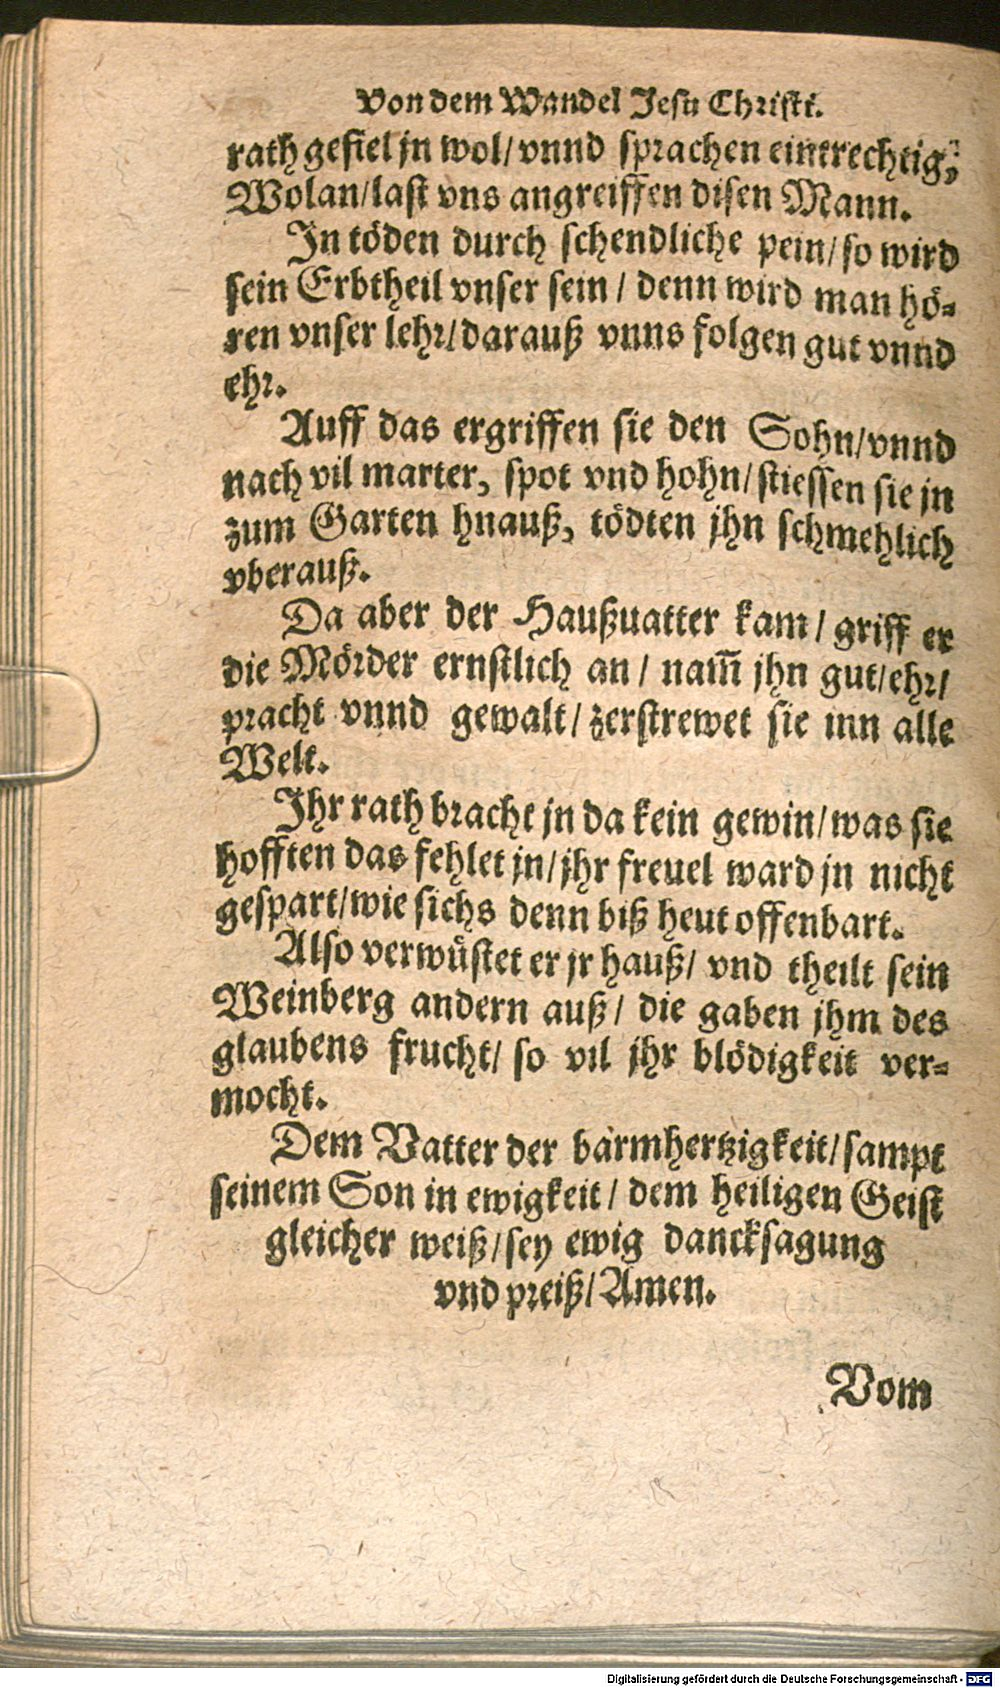 Von dem Wandel Jesu Christi.
rath gefiel jn wol/ vnnd sprachen eintrechtig,
Wolan/ last vns angreiffen disen Mann.
In töden durch schendliche pein/ so wird
sein Erbtheil vnser sein / denn wird man hö-
ren vnser lehr/ darauß vnns folgen gut vnnd
ehr.
Auff das ergriffen sie den Sohn/ vnnd
nach vil marter, spot vnd hohn/ stiessen sie jn
zum Garten hnauß, tödten jhn schmehlich
vberauß.
Da aber der Haußuatter kam / griff er
die Mörder ernstlich an / nam̅ jhn gut/ ehr/
pracht vnnd gewalt/ zerstrewet sie inn alle
Welt.
Ihr rath bracht jn da kein gewin/ was sie
hofften das fehlet jn/ jhr freuel ward jn nicht
gespart/ wie sichs denn biß heut offenbart.
Also verwüstet er jr hauß/ vnd theilt sein
Weinberg andern auß/ die gaben jhm des
glaubens frucht/ so vil jhr blödigkeit ver-
mocht.
Dem Vatter der barmhertzigkeit/ sampt
seinem Son in ewigkeit / dem heiligen Geist
gleicher weiß/ sey ewig dancksagung
vnd preiß/ Amen.
Vom
Digitalisierung gefördert durch die Deutsche Forschungsgemeinschaft - DFG